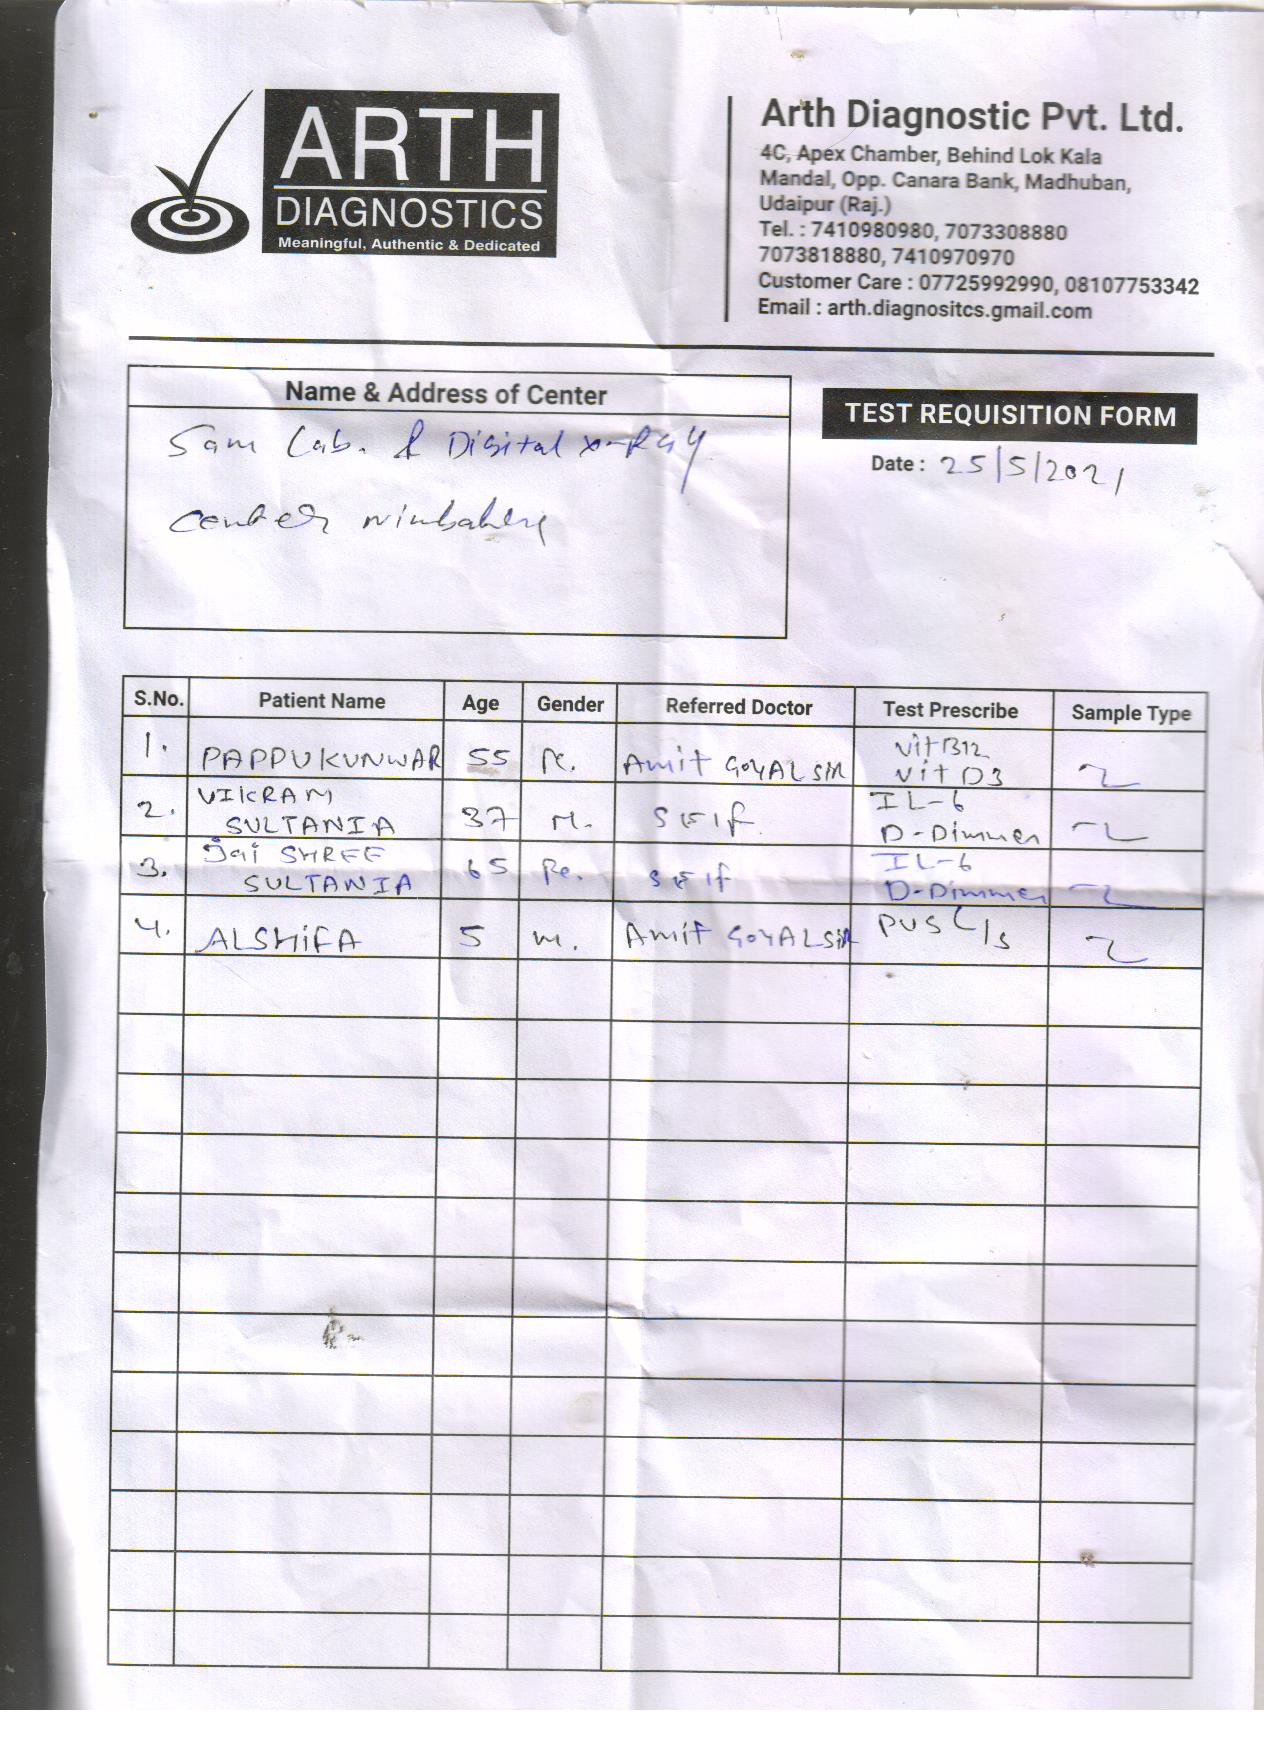 ARTH
DIAGNOSTICS
Meaningful, Authentic & Dedicated
Arth Diagnostic Pvt. Ltd.
4C, Apex Chamber, Behind Lok Kala
Mandal, Opp. Canara Bank, Madhuban,
Udaipur (Raj.)
Tel. : 7410980980, 7073308880
7073818880, 7410970970
Customer Care : 07725992990, 08107753342
Email : arth.diagnositcs.gmail.com
Name & Address of Center
Sam Lab. & Digital x-Ray
center
TEST REQUISITION FORM
Date : 25/5/2021
S.No. Patient Name Age Gender Referred Doctor Test Prescribe Sample Type
1. PAPPU KUNWAR 55 Amit GOYAL SIR Vit B12
Vit D3
2. VIKRAM
SULTANIA 37 M. self IL-6
D-Dimmer
3. Jai SHREE
SULTANIA 65 Fe. self IL-6
D-Dimmer
4. ALSHIFA 5 m. Amit GOYAL SIR PUS C/s